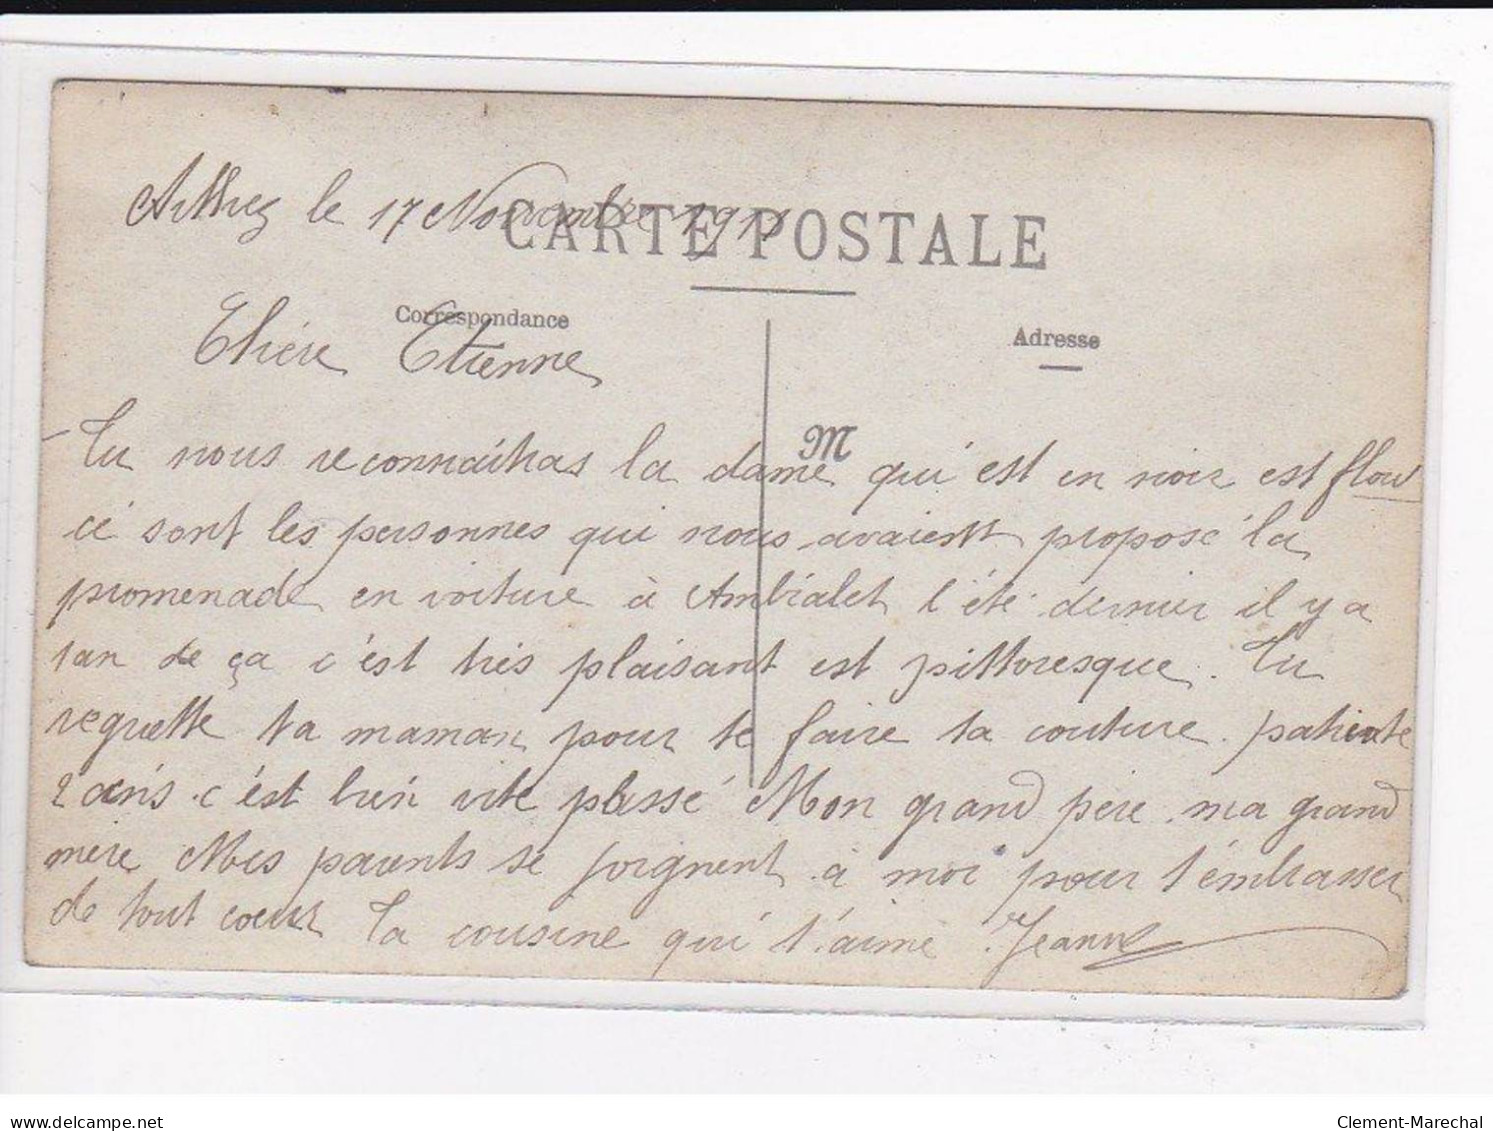 Arthez le 17 Novembre 1911
CARTE POSTALE
Correspondance
Adresse
Chère Etienne
M
Tu nous reconnaitras la dame qui est en noir est flou
ci sont les personnes qui nous avaient proposé la
promenade en voiture à Ambialet l'été dernier il y a
1 an de ça c'est très plaisant est pittoresque. Tu
regrette ta maman pour te faire ta couture. patiente
2 ans c'est bien vite passé Mon grand père ma grand
mère Mes parents se joignent à moi pour t'embrasser
de tout cœur Ta cousine qui t'aime Jeanne
delcampe.net
Clement-Marechal